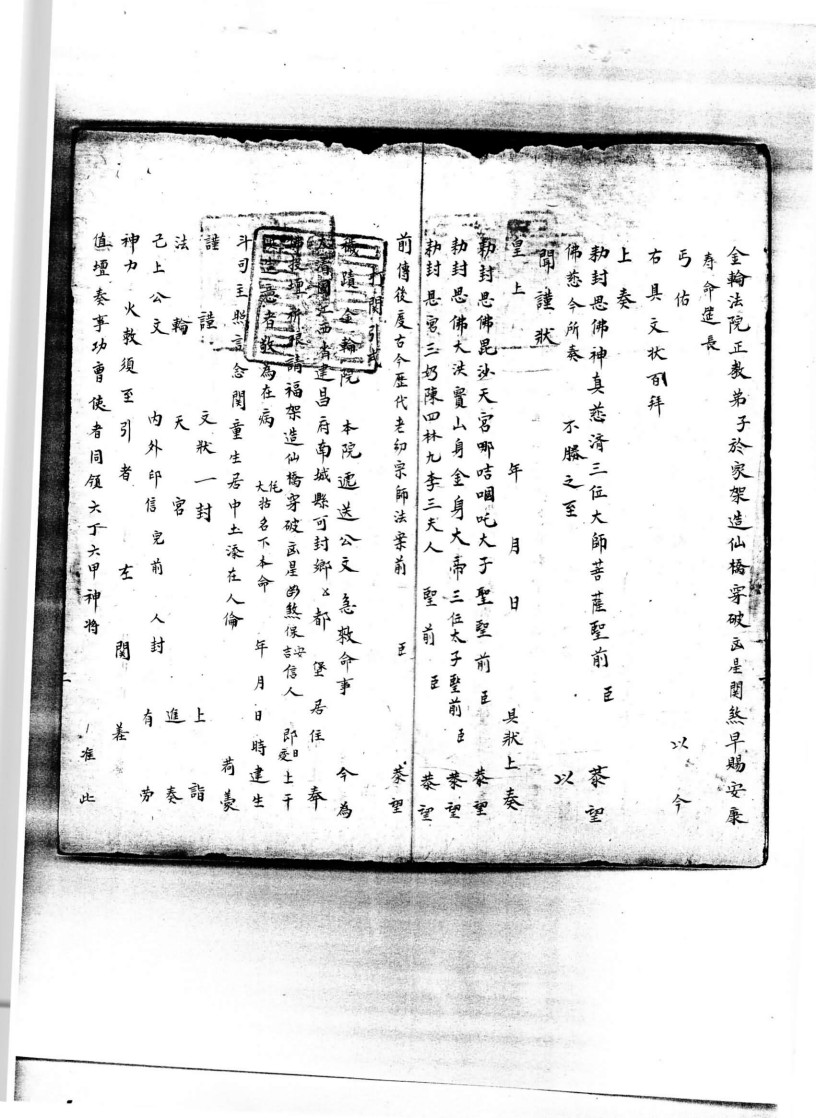 金輪法院正教弟子於家架造仙橋穿破凶星関煞早賜安康
寿命延長
丐佑 以今
右具文状百拜
上奏
勅封恩佛神真慈濟三位大師菩薩聖前 臣 恭望
佛慈今所奏 不勝之至 以
聞謹狀
皇上 年 月 日 具狀上奏
勅封恩佛毘沙天宮哪咭咽吒大子聖聖前 臣 恭望
勅封恩佛大法寳山身金身大帝三位太子聖前 臣 恭望
勅封恩宮三奶陳四林九李三夫人 聖前 臣 恭望
前傳後度古今歷代老幼宗師法案前 臣 恭望
関引式
穢蹟金輪院 本院遞送公文 急救命事 今為
國江西省建昌府南城縣可封鄉 都 堡居住 奉
投壇祈恨請福架造仙橋穿破凶星凶煞保安吉信人 即日受上干
意者敬為在病 大 名下本命 年月日時建生
斗司主照言念関童生居中土添在人倫 荷
謹謹 文状一封 上詣
法輪 天宮 進奏
己上公文 內外印信完前 人封 有劳
神力火教須至引者 左 関 差
值壇奏事功曹使者同領六丁六甲神将 准此